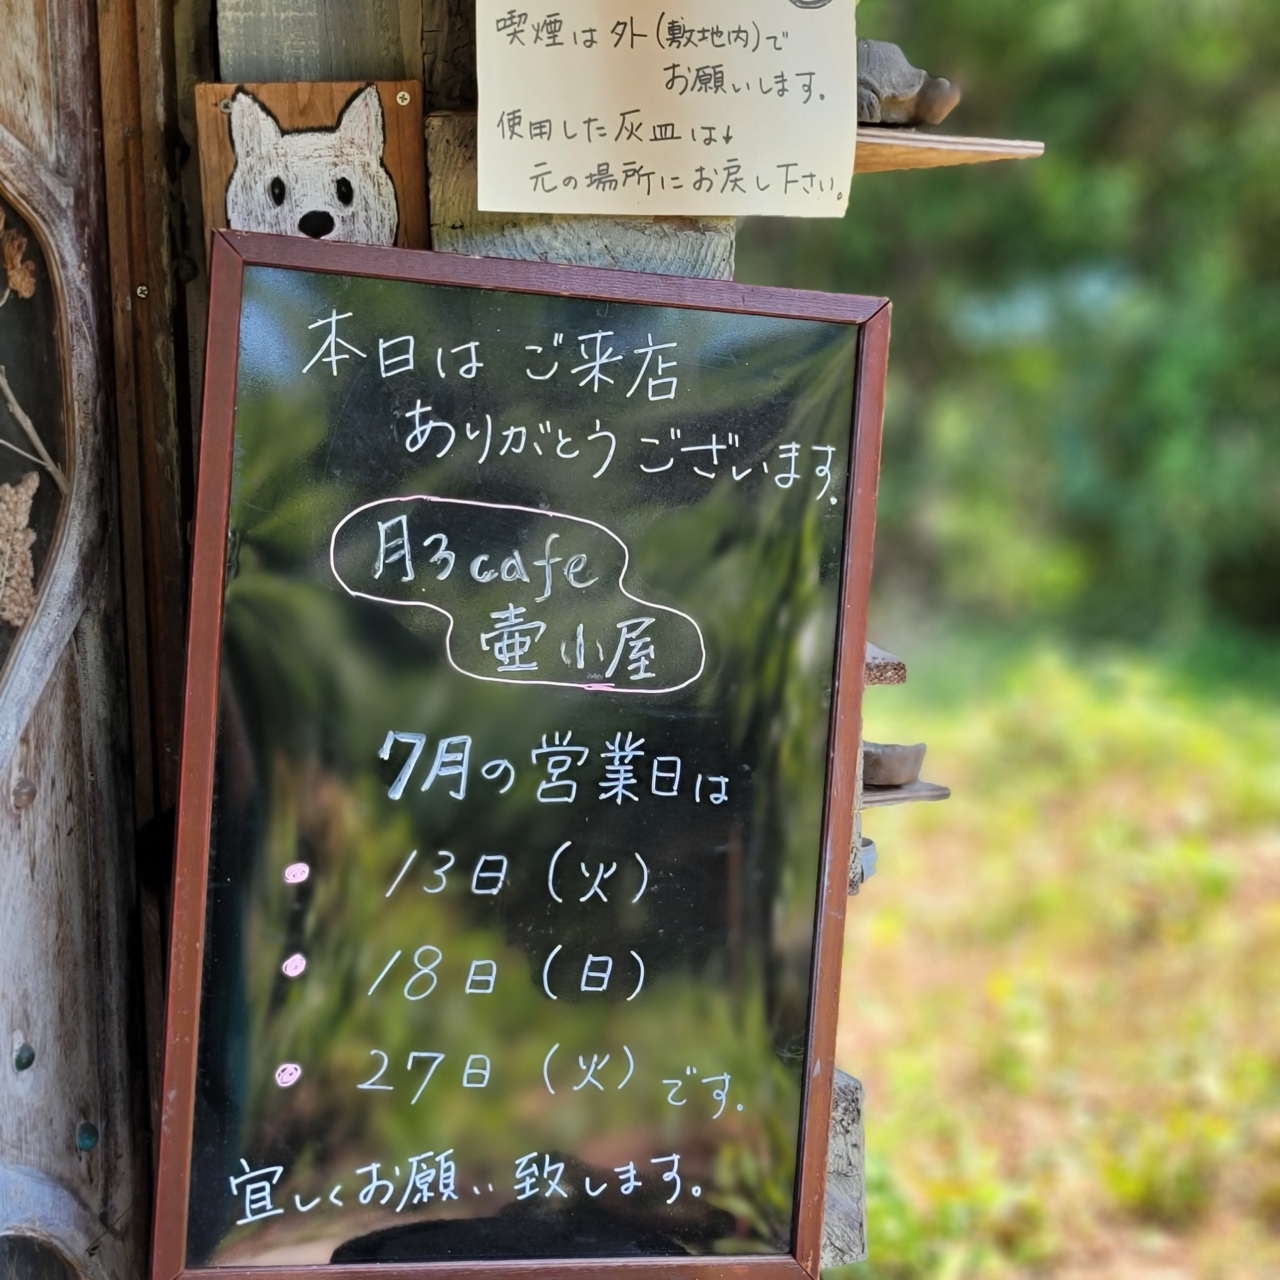 喫煙は外(敷地内)で
お願いします。
使用した灰皿は
元の場所にお戻し下さい。
本日は ご来店
ありがとうございます。
月3cafe
壷小屋
7月の営業日は
13日(火)
18日(日)
27日(火)です。
宜しくお願い致します。